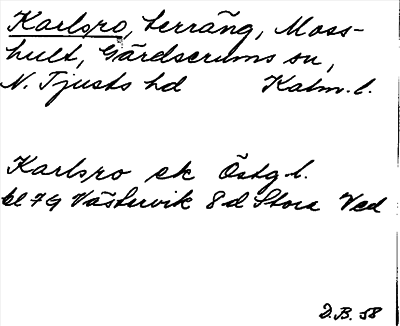 Karlsro, terräng, Moss-
hult, Gärdserums sn,
N. Tjusts hd Kalm. l.
Karlsro ek Östg l.
bl 7G Västervik 8d Stora Ved
D.B. 58